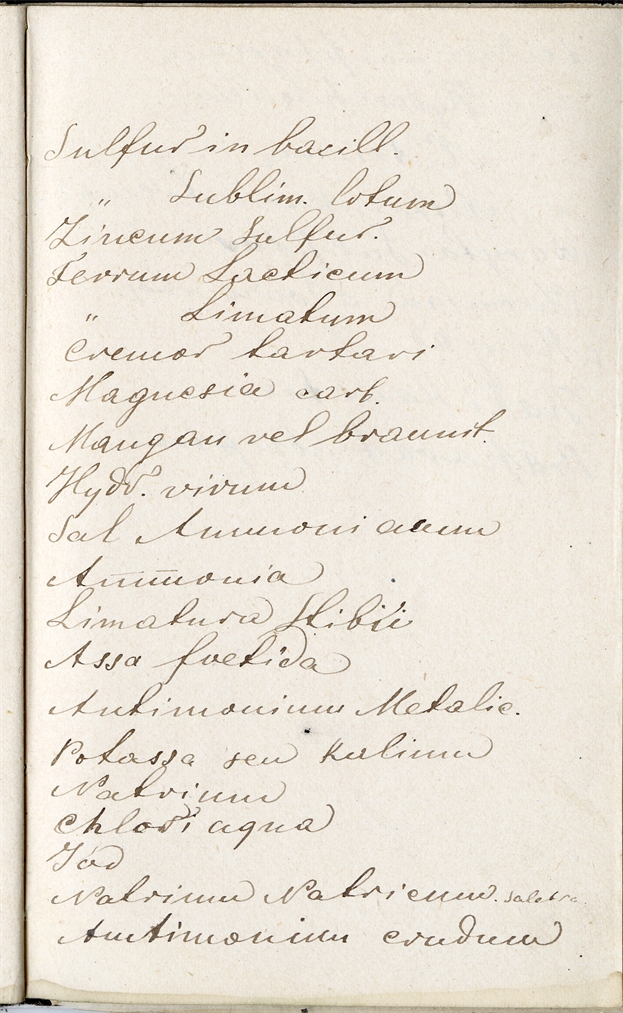 Sulfur in bacill.
" Sublim. lotum
Zincum Sulfur.
Ferrum Lacticum
" Limatum
Cremor tartari
Magnesia carb.
Mangan vel braunst.
Hydr. vivum
Sal Ammoniacum
Ammonia
Limatura Stibii
Assa foetida
Antimonium Metalic.
Potassa seu Kalium
Natrium
Chlori aqua
Jod
Natrium Natricum.
Amtimonium crudum